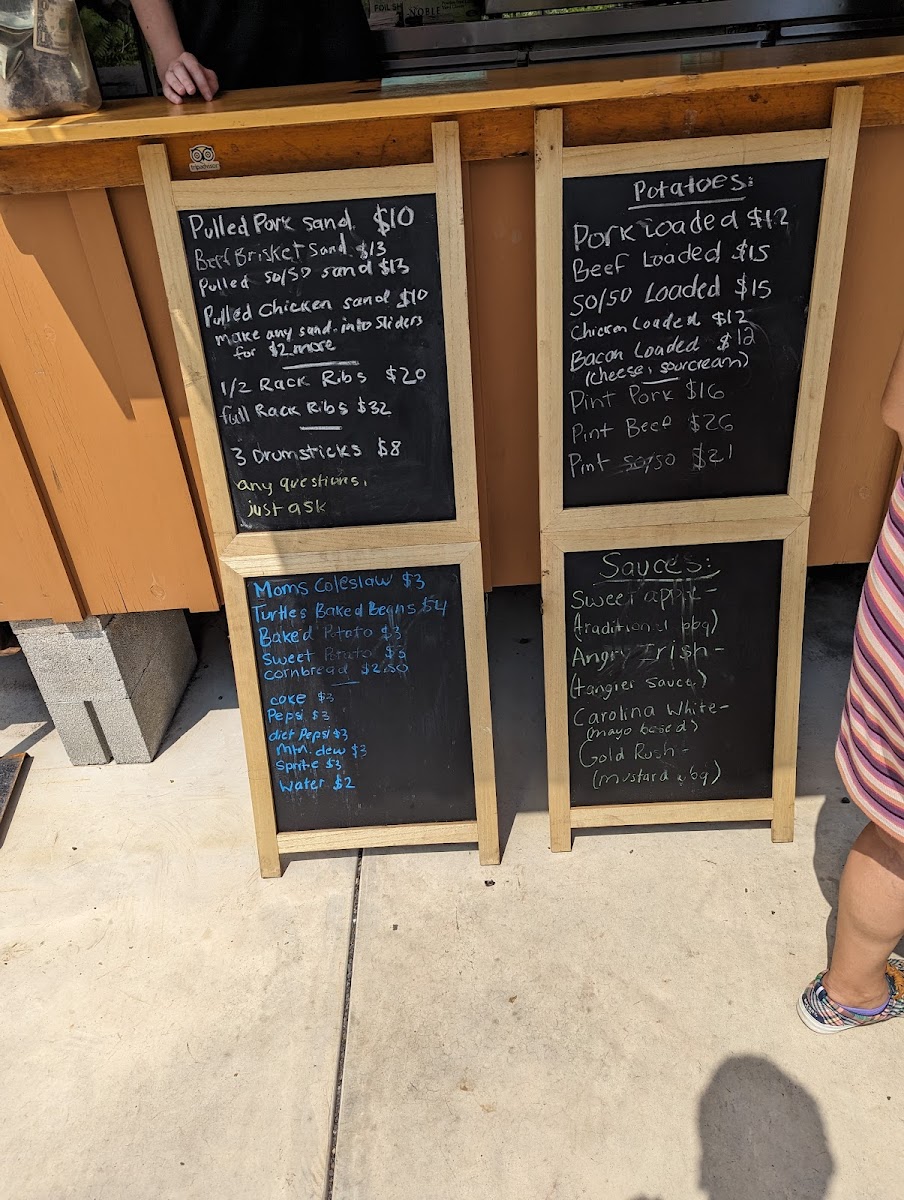 FOIL SH
NOBLE
tripadvisor
Pulled Pork sand $10
Beef Brisket Sand $13
Pulled 50/50 sand $13
Pulled Chicken sand $10
make any sand. into Sliders
for $2 more
1/2 Rack Ribs $20
full Rack Ribs $32
3 Drumsticks $8
any questions,
just ask
Moms Coleslaw $3
Turtles Baked Beans $4
Baked Potato $3
Sweet Potato $3
cornbread $2.50
coke $3
Pepsi $3
diet Pepsi $3
Mtn. dew $3
Sprite $3
Water $2
Potatoes:
Pork Loaded $12
Beef Loaded $15
50/50 Loaded $15
Chicken Loaded $12
Bacon Loaded $12
(Cheese, sourcream)
Pint Pork $16
Pint Beef $26
Pint 50/50 $21
Sauces:
Sweet apple -
(traditional bbq)
Angry Irish -
(tangier sauce)
Carolina White -
(mayo based)
Gold Rush -
(mustard bbq)